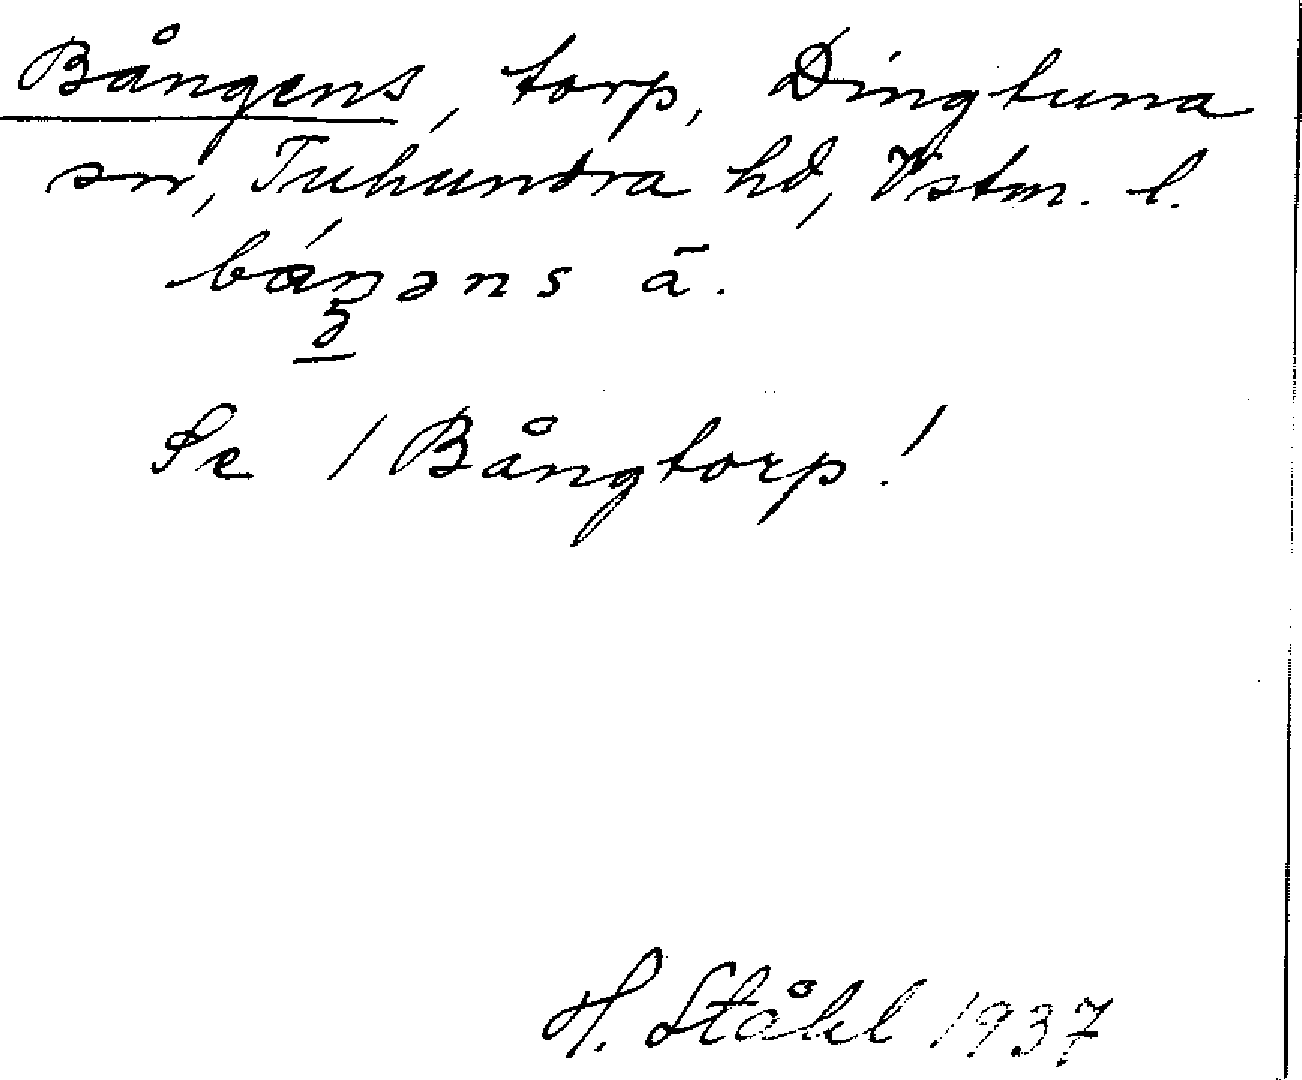 Bångens, torp, Dingtuna
sn, Tuhundra hd, Vstm. l.
báŋəns ā.
Se / Bångtorp!
H. Ståhl 1937